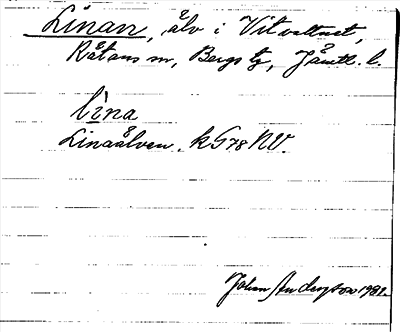 Linan, älv i Vitvattnet,
Rätans sn, Bergs tg, Jämtl. l.
lina
Linaälven. k G 78 NV.
Johan Anderson 1981.